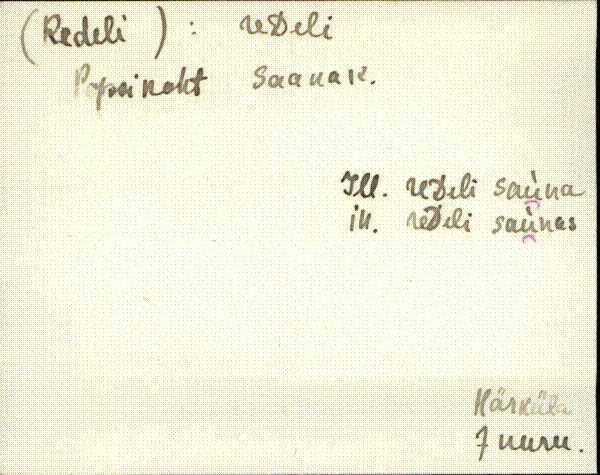 (Redeli) : reDeli
Popsi koht Saanak.
Ill. reDeli sau̬na
in. reDeli sau̬nas
Härküla
J nuru.